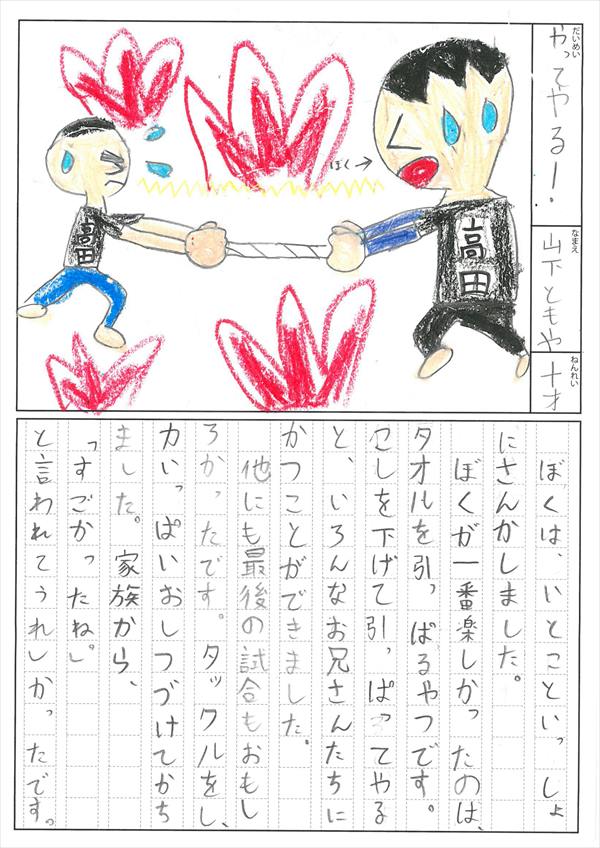 だいめい
やってやる!
なまえ
山下ともや
ねんれい
十才
ぼく→
高田
高田
ぼくは、いとこといっしょ
にさんかしました。
ぼくが一番楽しかったのは、
タオルを引っぱるやつです。
こしを下げて引っぱってやる
と、いろんなお兄さんたちに
かつことができました。
他にも最後の試合もおもし
ろかったです。タックルをし、
力いっぱいおしつづけてかち
ました。家族から、
「すごかったね。」
と言われてうれしかったです。